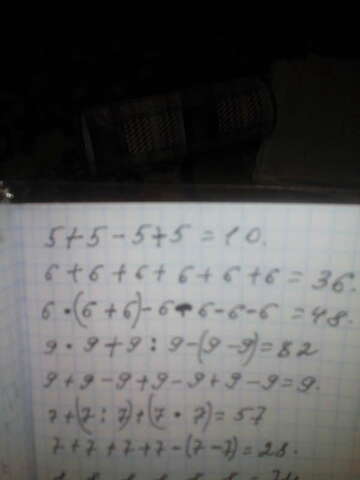 5+5-5+5=10.
6+6+6+6+6+6=36.
6•(6+6)-6-6-6-6=48.
9•9+9:9-(9-9)=82
9+9-9+9-9+9-9=9.
7+(7:7)+(7•7)=57
7+7+7+7-(7-7)=28.